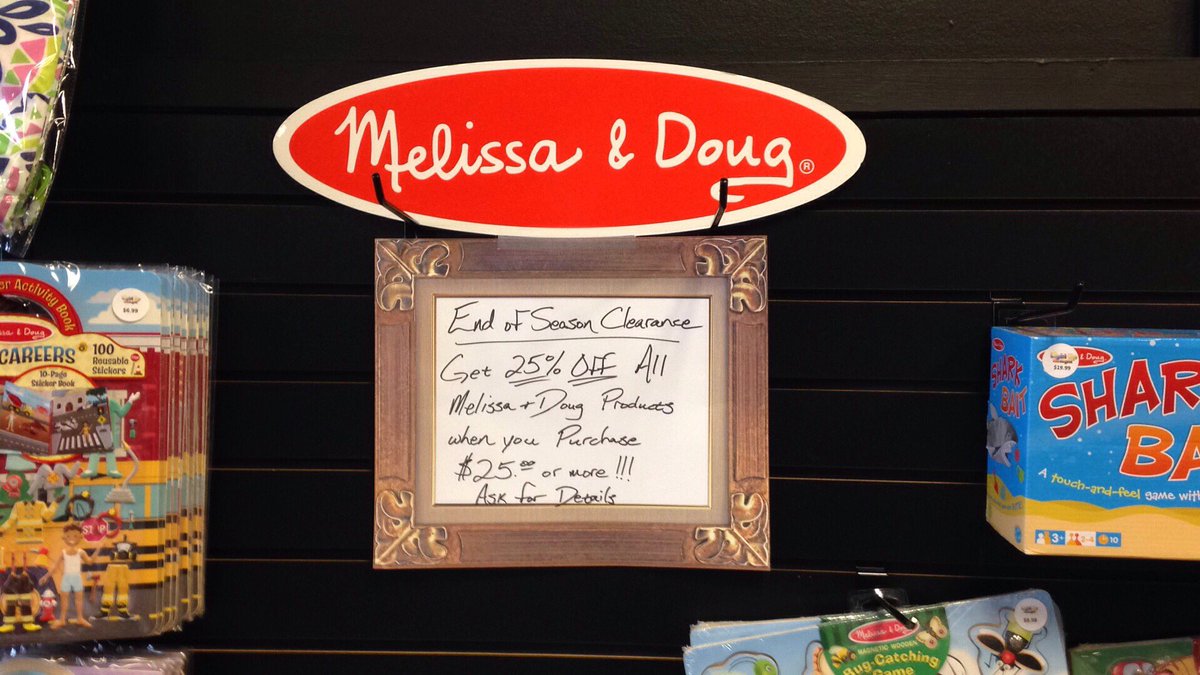 Melissa & Doug®
End of Season Clearance
Get 25% OFF All
Melissa + Doug Products
when you Purchase
$25.00 or more!!!
Ask for Details
Activity Book
& Doug
CAREERS
10-Page
Sticker Book
100
Reusable
Stickers
$6.99
STOP
& Doug
$19.99
SHARK
BAIT
SHAR
BA
A touch-and-feel game with
3+
2-4
10
Melissa & Doug
MAGNETIC WOODEN
Bug-Catching
Game